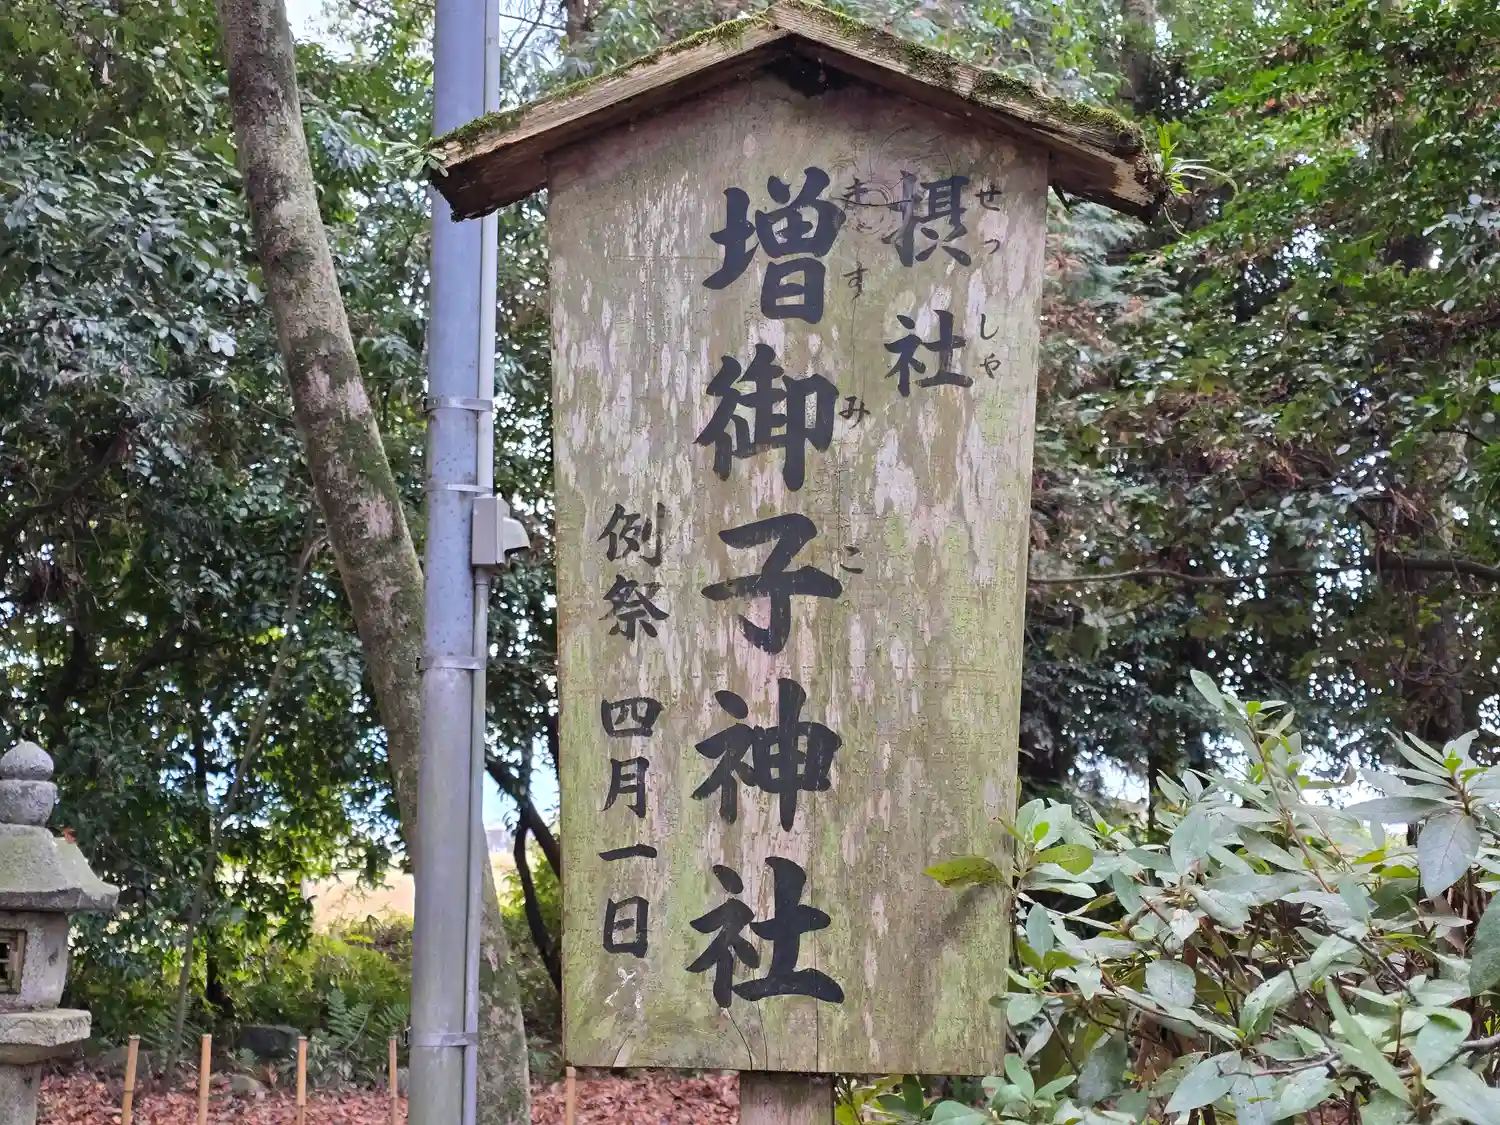 せっしゃ
摂社
ますみこ
増御子神社
例祭 四月一日